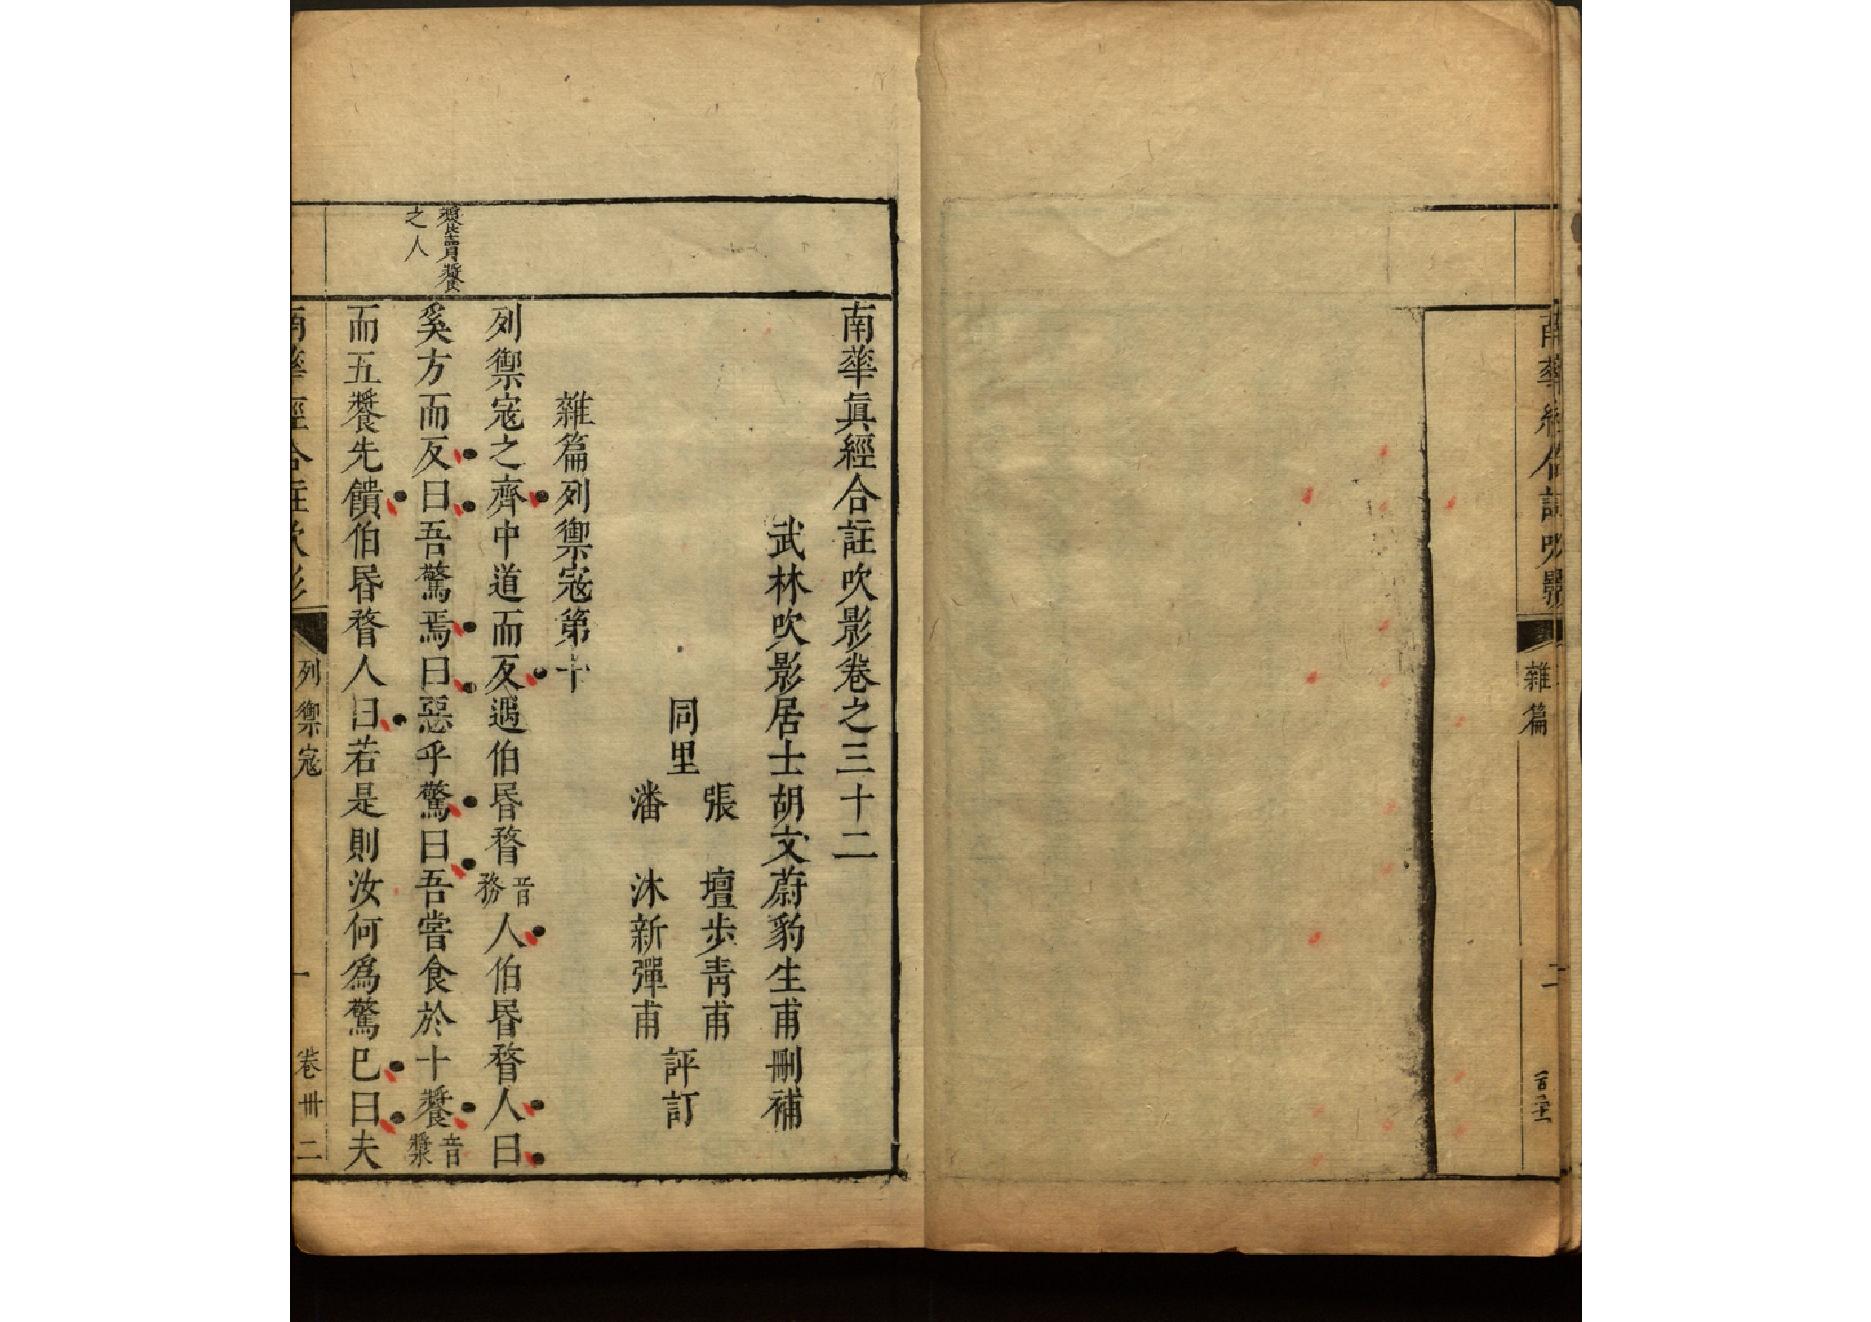 雜篇
二
南華真經合註吹影卷之三十二
武林吹影居士胡文蔚豹生甫刪補
同里
張 壇步青甫
潘 沐新彈甫
評訂
雜篇列禦寇第十
列禦寇之齊中道而反遇伯昬瞀音務人伯昬瞀人曰
奚方而反曰吾驚焉曰惡乎驚曰吾嘗食於十䬾音漿
䬾賣䬾
之人
而五䬾先饋伯昬瞀人曰若是則汝何為驚巳曰夫
南華經合註吹影
列禦寇
一
卷卅二